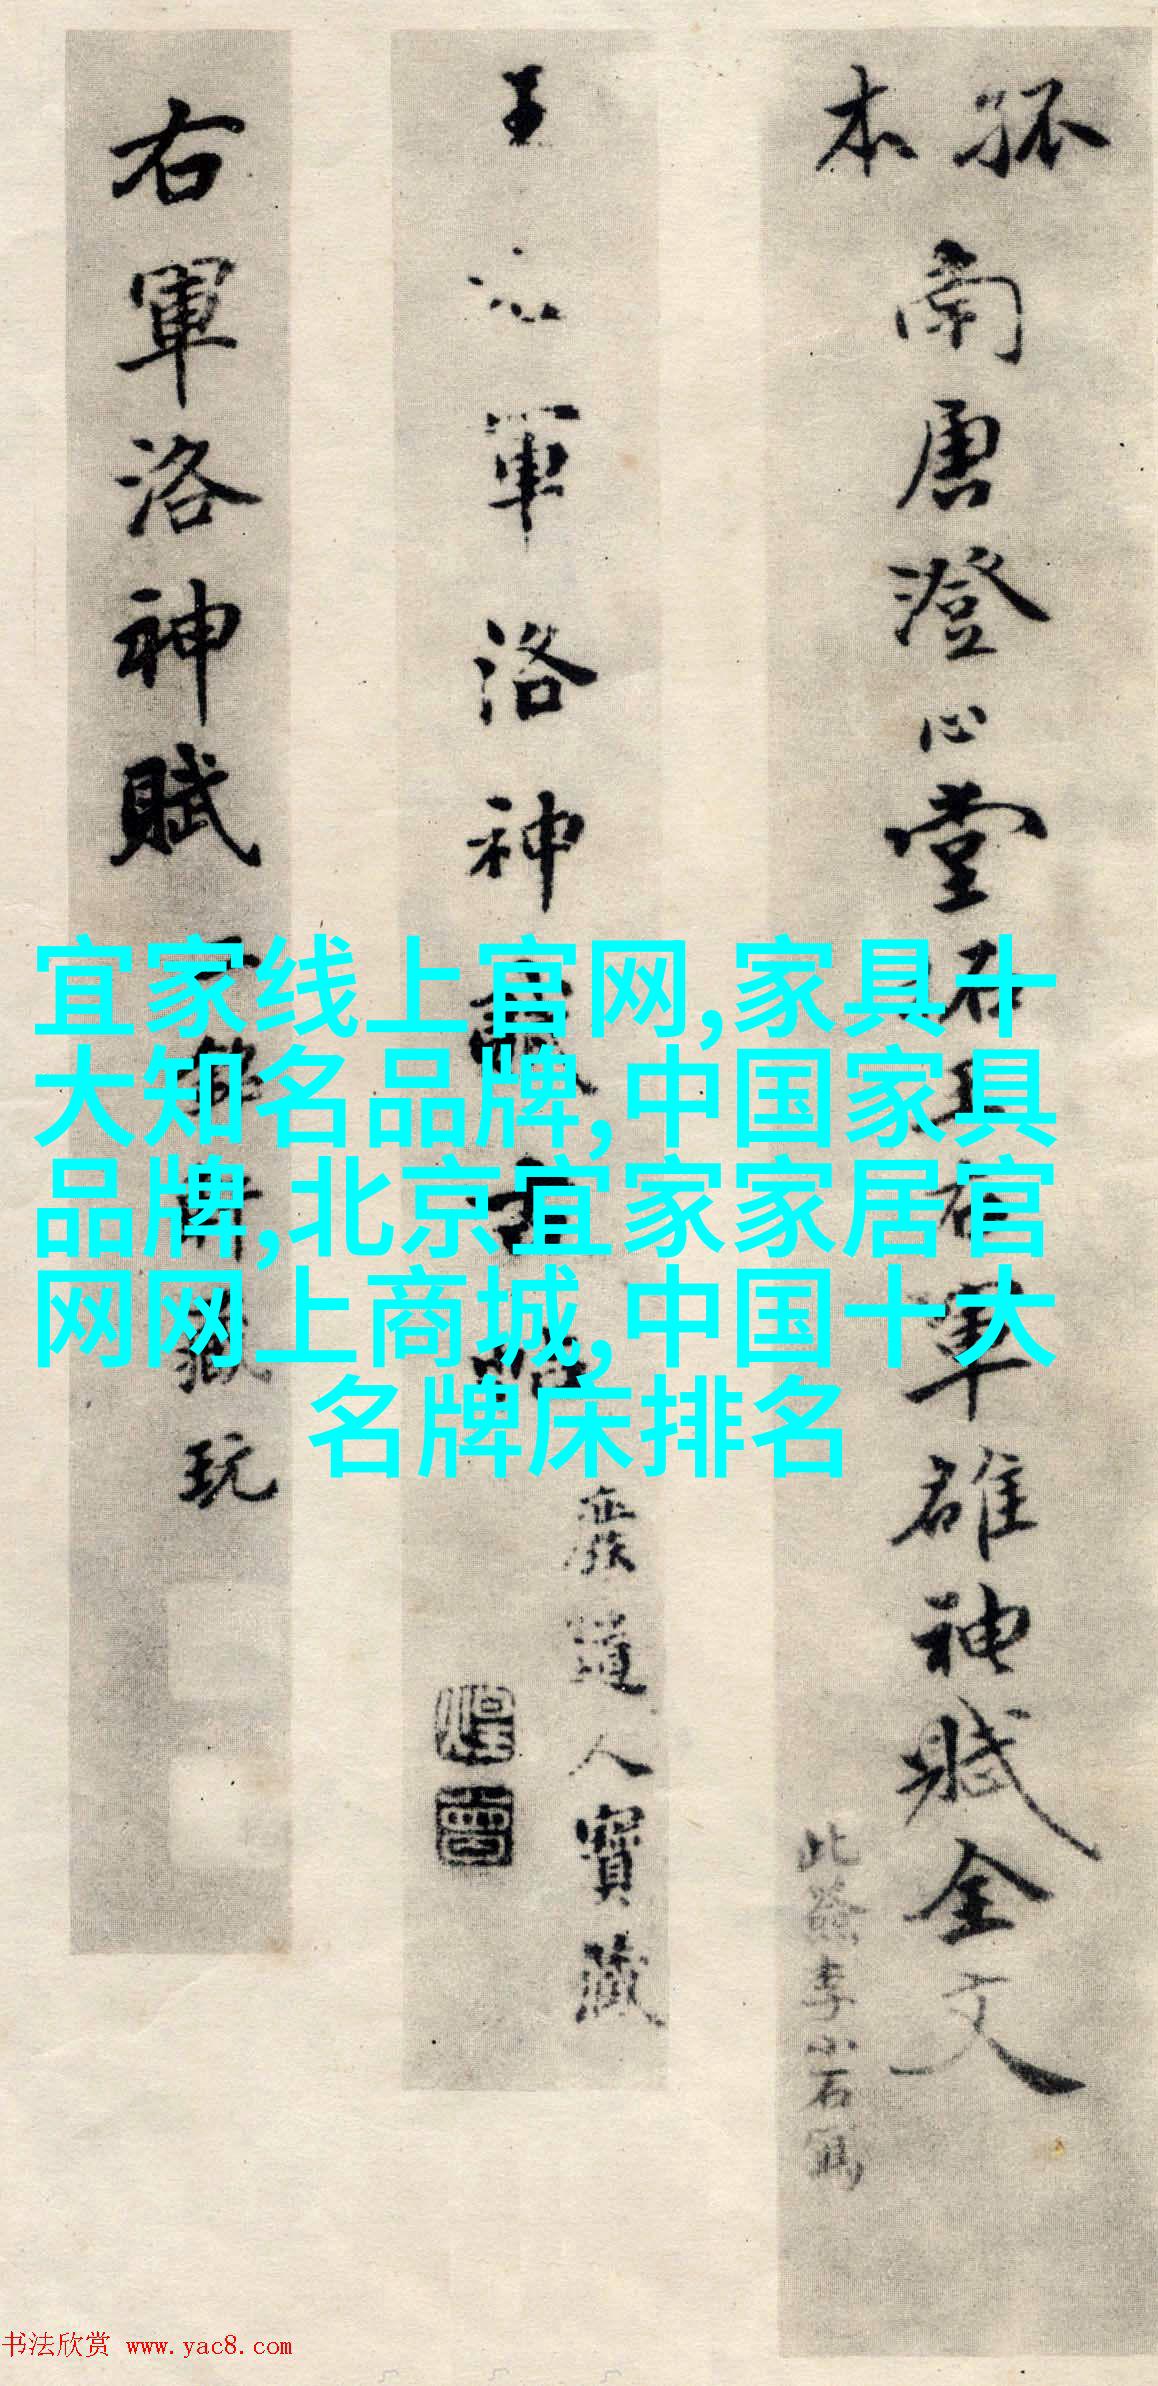 孤本
南唐澄心堂石王右軍雒神賦全文
此籤李小石寫
王右軍洛神賦
廢道人寶藏
右軍洛神賦
玩
宜家线上官网,家具十
大知名品牌,中国家具
品牌,北京宜家家居官
网网上商城,中国十大
名牌床排名
书法欣赏 www.yac8.com